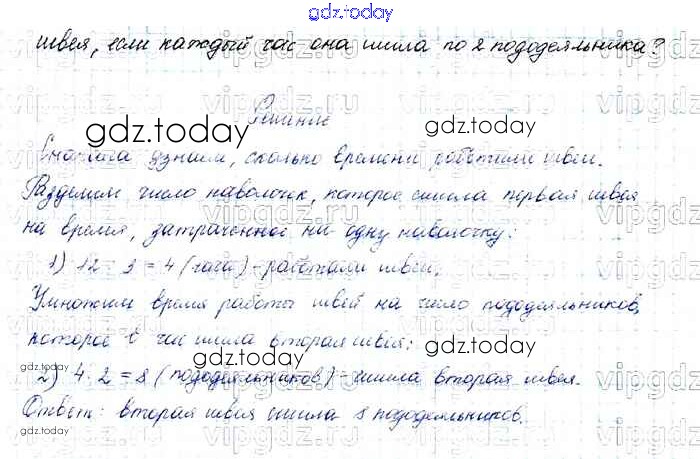 gdz.today
швея, если каждый час она шила по 2 пододеяльника?
Решение
Сначала узнаем, сколько времени работали швеи.
Разделим число наволочек, которое сшила первая швея
на время, затраченное на одну наволочку:
1) 12 : 3 = 4 (часа) - работали швеи,
Умножим время работы швей на число пододеяльников,
которое в час шила вторая швея:
2) 4 · 2 = 8 (пододеяльников) - сшила вторая швея.
Ответ: вторая швея сшила 8 пододеяльников.
gdz.today
gdz.today
gdz.today
gdz.today
gdz.today
gdz.today
gdz.today
vipgdz.ru